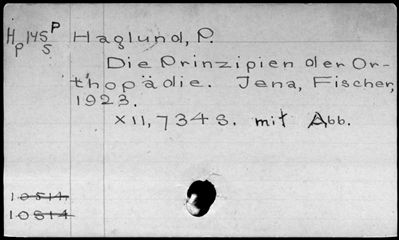 Hp 145 P
5
Haglund, P.
Die Prinzipien der Or-
thopädie. Jena, Fischer,
1923.
XII, 734 S. mit Abb.
10514
10814